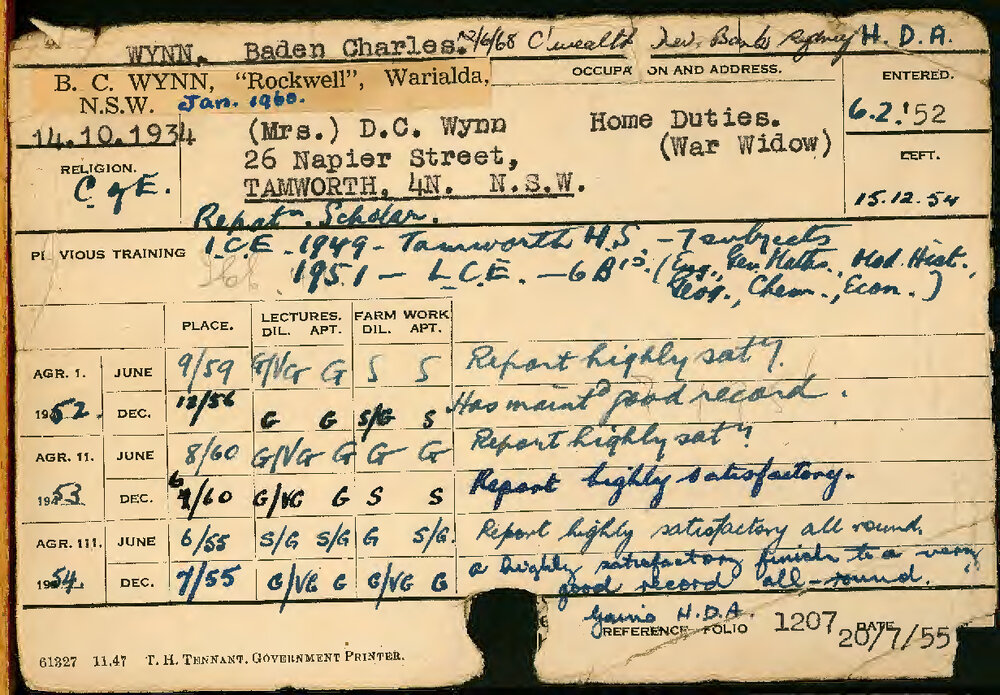 WYNN, Baden Charles. 12/6/68 C'wealth Dev. Bank Sydney H. D. A.
B. C. WYNN, "Rockwell", Warialda,
N.S.W. Jan. 1960.
OCCUPA ON AND ADDRESS.
ENTERED.
6.2.'52
14.10.1934
(Mrs.) D.C. Wynn Home Duties.
26 Napier Street, (War Widow)
TAMWORTH, 4N. N.S.W.
RELIGION.
C of E.
LEFT.
15.12.54
Repatn. Scholar.
P VIOUS TRAINING
I.C.E. 1949 - Tamworth H.S. - 7 subjects
1951 - L.C.E. - 6 B's. (Eng., Gen. Maths., Mod. Hist.,
Geog., Chem., Econ.)
PLACE. LECTURES. DIL. APT. FARM WORK DIL. APT.
AGR. I. JUNE 9/59 G/VG G S S Report highly saty.
1952. DEC. 12/56 G G S/G S Has maintd good record.
AGR. II. JUNE 8/60 G/VG G G G Report highly saty
1953 DEC. /60 G/VG G S S Report highly satisfactory.
AGR. III. JUNE 6/55 S/G S/G G S/G. Report highly satisfactory all round.
1954. DEC. 7/55 G/VG G G/VG G a highly satisfactory finish to a very
good record all-round.
Gains H.D.A.
REFERENCE FOLIO 1207 DATE 20/7/55
61327 11.47 T. H. TENNANT. GOVERNMENT PRINTER.